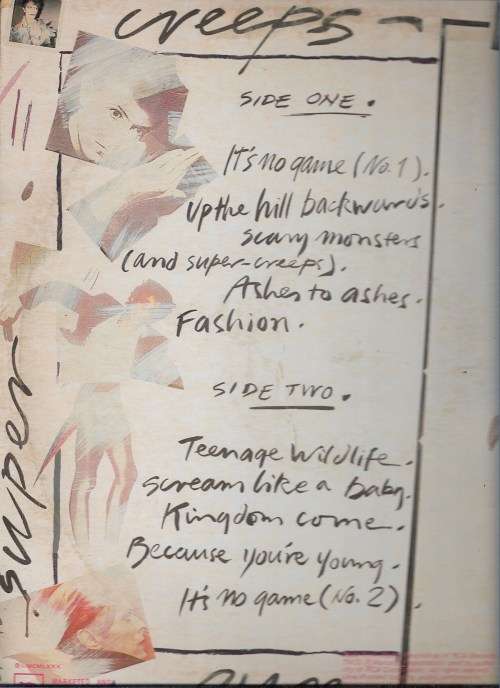 creeps
SIDE ONE.
It's no game (No. 1).
Up the hill backwards.
scary monsters
(and super-creeps).
Ashes to ashes.
Fashion.
SIDE TWO.
Teenage Wildlife.
scream like a baby.
Kingdom come.
Because you're young.
It's no game (No. 2).
super
MARKETED AND